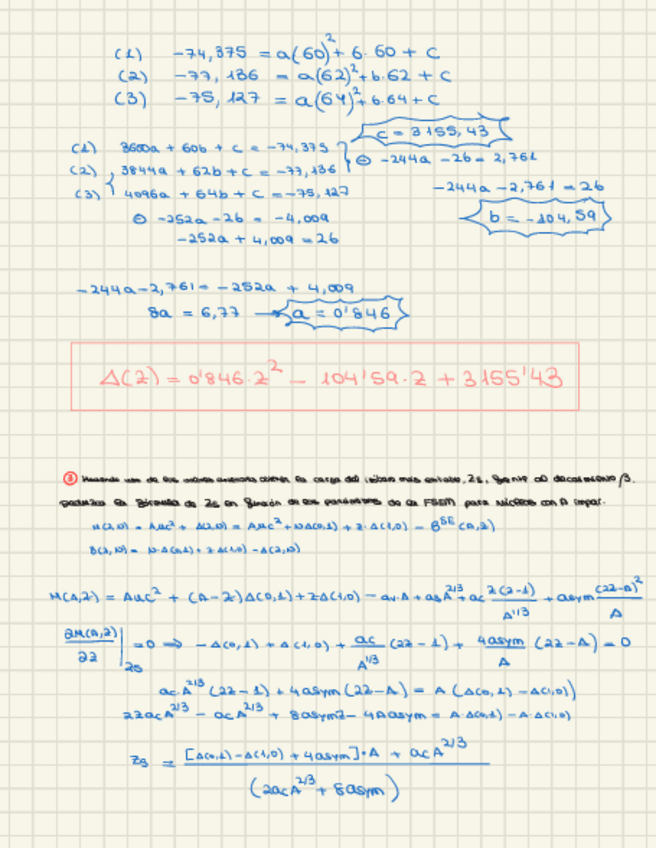 (1) -74,375 = a(60)² + 6·60 + c
(2) -77,136 = a(62)² + b·62 + c
(3) -75,127 = a(64)² + 6·64 + c
c = 3155,43
(1) 3600a + 60b + c = -74,375
⊖ -244a - 2b = 2,761
(2) 3844a + 62b + c = -77,136
(3) 4096a + 64b + c = -75,127
-244a - 2,761 = 2b
⊖ -252a - 2b = -4,009
b = -104,59
-252a + 4,009 = 2b
-244a - 2,761 = -252a + 4,009
8a = 6,77 → a = 0'846
Δ(z) = 0'846·z² - 104'59·z + 3155'43
③ Haciendo uso de la carga del isóbaro más estable, Zs, frente al decaimiento β.
la fórmula de Zs en función de los parámetros de la FSEM para núcleos con A impar.
M(A,Z) = AMc² + Δ(A,Z) = AMc² + NΔ(0,1) + Z·Δ(1,0) - B^SE (A,Z)
B(Z,N) = N·Δ(0,1) + Z·Δ(1,0) - Δ(Z,N)
M(A,Z) = AMc² + (A-Z)Δ(0,1) + ZΔ(1,0) - av·A + as A^2/3 + ac Z(Z-1)/A^1/3 + asym (2Z-A)²/A
∂M(A,Z)/∂Z |Zs = 0 ⇒ -Δ(0,1) + Δ(1,0) + ac/A^1/3 (2Z-1) + 4asym/A (2Z-A) = 0
ac·A^2/3 (2Z-1) + 4asym (2Z-A) = A (Δ(0,1) - Δ(1,0))
2ZacA^2/3 - acA^2/3 + 8asymZ - 4Aasym = A·Δ(0,1) - A·Δ(1,0)
Zs = [Δ(0,1) - Δ(1,0) + 4asym]·A + acA^2/3
(2acA^2/3 + 8asym)